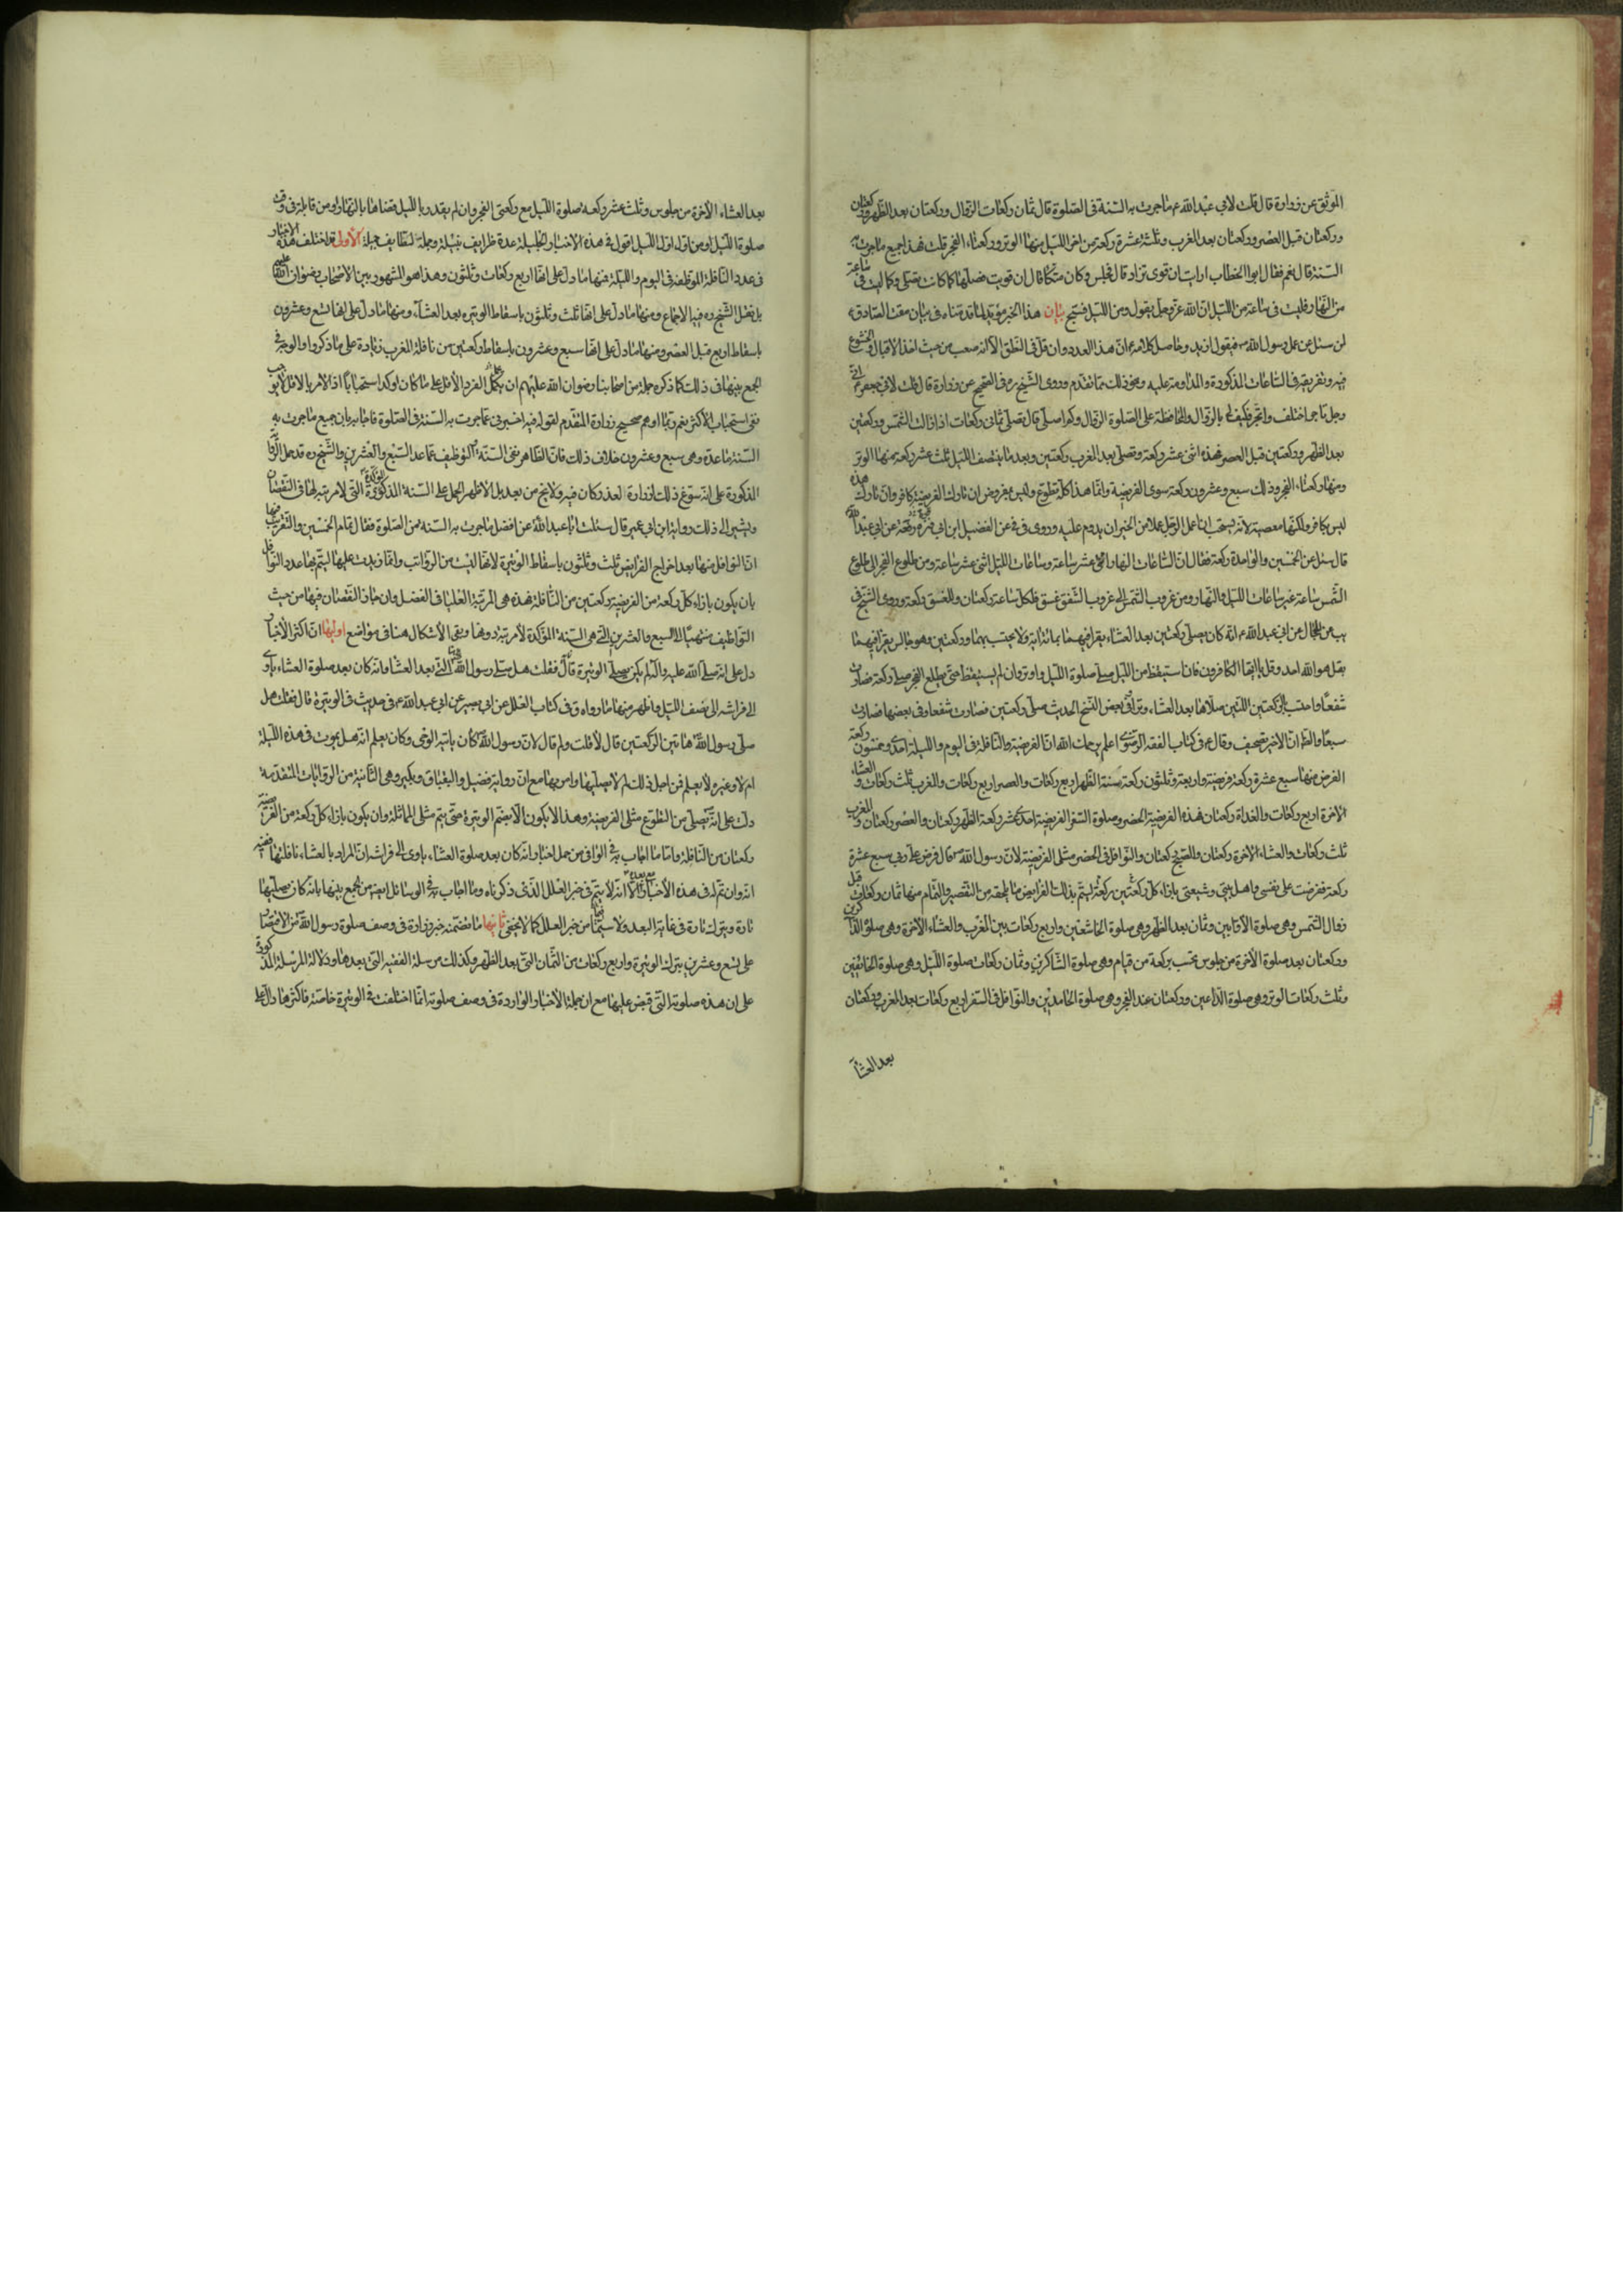 الموثق عن زرارة قال قلت لابي عبد الله ع ما جرت به السنة في الصلوة قال ثمان ركعات الزوال وركعتان بعد الظهر وركعتان
وركعتان قبل العصر وركعتان بعد المغرب وثلثة عشرة ركعة من اخر الليل منها الوتر وركعتاء الفجر قلت فهذا جميع ما جرت به
السنة قال نعم فقال ابو الخطاب ارايت ان قوى فزاد قال فجلس وكان متكئا قال ان قويت فصلها كما كانت تصلى وكما ليست في ساعة
من النهار فليست في ساعة من الليل ان الله عز وجل يقول ومن الليل فسبح بيان هذا الخبر مؤيد لما قدمناه في بيان معنى الصادق ع
لن سئل عن عمل رسول الله ص فيقول ازيد وحاصل كلامه ع ان هذا العدد وان قل في النطق الا انه صعب من حيث اخذ الاقبال والخشوع
فيه وتفريقه في الساعات المذكورة والمداومة عليه ونحو ذلك مما تقدم وروى الشيخ ره في الصحيح عن زرارة قال قلت لابي جعفر ع اني
رجل تاجر اختلف واتجر فكيف لي بالزوال والمحافظة على الصلوة الزوال وكم اصلى قال تصلى ثماني ركعات اذا زالت الشمس وركعتين
بعد الظهر وركعتين قبل العصر فهذه اثنى عشر ركعة وتصلى بعد المغرب ركعتين وبعد ما ينتصف الليل ثلث عشر ركعة منها الوتر
ومنها ركعتاء الفجر وذلك سبع وعشرون ركعة سوى الفريضة وانما هذا كله تطوع وليس بمفروض ان تارك الفريضة كافر وان تارك هذه
ليس بكافر ولكنها معصية لانه يستحب اذا عمل الرجل عملا من الخير ان يدوم عليه وروى في في عن الفضيل ابن ابي قرة رفعه عن ابي عبد الله
قال سئل عن الخمسين والواحدة ركعة فقال ان الساعات النهار اثنى عشر ساعة وساعات الليل اثنى عشر ساعة ومن طلوع الفجر الى طلوع
الشمس ساعة غير ساعات الليل والنهار ومن غروب الشمس الى غروب الشفق غسق فلكل ساعة ركعتان وللغسق ركعة وروى الشيخ في
يب عن الحجال عن ابي عبد الله ع انه كان يصلى ركعتين بعد العشاء يقرا فيهما بمائة اية ولا يحتسب بهما وركعتين وهو جالس يقرا فيهما
بقل هو الله احد وقل يا ايها الكافرون فان استيقظ من الليل صلى صلوة الليل واوتر وان لم يستيقظ حتى يطلع الفجر صلى ركعة فصارت
شفعا واحتسب بالركعتين اللتين صلاهما بعد العشاء وترا وفي بعض النسخ الحديث صلى ركعتين فصارت شفعا وفي بعضها فصارت
سبعا والظ ان الاخير تصحيف وقال ع في كتاب الفقه الرضوي اعلم يرحمك الله ان الفريضة والنافلة في اليوم والليلة احدى وخمسون ركعة
الفرض منها سبع عشرة ركعة فريضة واربعة وثلثون ركعة سنة الظهر اربع ركعات والعصر اربع ركعات والمغرب ثلث ركعات والعشاء
الاخرة اربع ركعات والغداة ركعتان فهذه الفريضة الحضر وصلوة السفر الفريضة احدى عشر ركعة الظهر ركعتان والعصر ركعتان والمغرب
ثلث ركعات والعشاء الاخرة ركعتان والصبح ركعتان والنوافل في الحضر مثلى الفريضة لان رسول الله ص قال فرض على ربي سبع عشرة
ركعة ففرضت على نفسى واهل بيتي وشيعتى بازاء كل ركعة ركعتين ليتم بذلك الفرايض ما يلحقه من التقصير والثمام منها ثمان ركعات قبل
زوال الشمس وهي صلوة الاوابين وثمان بعد الظهر وهي صلوة الخاشعين واربع ركعات بين المغرب والعشاء الاخرة وهي صلوة الذاكرين
وركعتان بعد صلوة الاخرة من جلوس تحسب بركعة من قيام وهي صلوة الشاكرين وثمان ركعات صلوة الليل وهي صلوة الخائفين
وثلث ركعات الوتر وهي صلوة الداعين وركعتان عند الفجر وهي صلوة الحامدين والنوافل في السفر اربع ركعات بعد المغرب وركعتان
بعد العشاء
بعد العشاء الاخرة من جلوس وثلث عشر ركعة صلوة الليل مع ركعتى الفجر وان لم يقدر بالليل قضاها بالنهار او من قابله في وقت
صلوة الليل او من اول الليل اقول في هذه الاخبار الجليلة عدة ظرايف نبيلة وجملة لطايف جميلة الاولى قد اختلف هذه الاخبار
في عدد النافلة الموظفة في اليوم والليلة فمنها ما دل على انها اربع ركعات وثلثون وهذا هو المشهور بين الاصحاب رضوان الله عليهم
بل نقل الشيخ ره فيه الاجماع ومنها ما دل على انها ثلث وثلثون باسقاط الوتيره بعد العشاء ومنها ما دل على انها تسع وعشرون
باسقاط اربع قبل العصر ومنها ما دل على انها سبع وعشرون باسقاط ركعتين من نافلة المغرب زيادة على ما ذكر واوالوجه في
الجمع بينها في ذلك كما ذكره جملة من اصحابنا رضوان الله عليهم ان يحمل الفرد الاقل على ما كان اوكد استحبابا اذ الامر بالاقل لا يوجب
نفى استحباب الاكثر نعم ربما اوهم صحيح زرارة المتقدم لقوله فيه اخبرنى عما جرت به السنة في الصلوة فاجابه بيان جميع ما جرت به
السنة ما عده وهي سبع وعشرون خلاف ذلك فان الظاهر نفى السنة التوظيف عما عد السبع والعشرين والشيخ ره قد حمل الروا
المذكورة على انه سوغ ذلك لزرارة لعذر كان فيه ولا يخ من بعد بل الاظهر الحمل على السنة المذكورة المؤكدة التي لا مرتبة لها في النقصان
ويشير الى ذلك رواية ابن ابي عمير قال سئلت ابا عبد الله عن افضل ما جرت به السنة من الصلوة فقال تمام الخمسين والتقريب فيها
ان النوافل منها بعد اخراج الفرايض ثلث وثلثون باسقاط الوتيرة لانها ليست من الرواتب وانما زيدت عليها ليتم بها عدد النوافل
بان يكون بازاء كل ركعة من الفريضة ركعتين من النافلة فهذه هي المرتبة العليا في الفضل وان جاز النقصان فيها من حيث
التواظيف منتهيا الى السبع والعشرين التي هي السنة المؤكدة لا مرتبة دونها وبقى الاشكال هنا في مواضع اولها ان اكثر الاخبار
دل على انه صلى الله عليه واله لم يكن يصلى الوتيرة قال فقلت هل صلى رسول الله التي بعد العشاء وانه كان بعد صلوة العشاء ياوى
الى فراشه الى نصف الليل واظهر منها ما رواه ق في كتاب العلل عن ابي بصير عن ابي عبد الله ع في حديث في الوتيرة قال فقلت هل
صلى رسول الله ص هاتين الركعتين قال لا قلت ولم قال لان رسول الله ص كان ياتيه الوحى وكان يعلم انه هل يموت في هذه الليلة
ام لا وغيره لا يعلم فمن اجل ذلك لم لا يصليها وامر بها مع ان رواية فضيل والبقباق وبكير وهي الثانية من الروايات المتقدمة
دلت على انه ص يصلى من التطوع مثلى الفريضة وهذا لا يكون الا بضم الوتيرة حتى يتم مثلى المماثلة وان يكون بازاء كل ركعة من الفريضة
ركعتان من النافلة واما ما اجاب به في الوافي من حمل اخبار انه كان بعد صلوة العشاء ياوى الى فراشه ان المراد بالعشاء نافلتها ففيه
انه وان تم له في هذه الاخبار الا انه لا يتم في خبر العلل الذي ذكرناه وما اجاب به في الوسائل ايضه من الجمع بينها بانه كان يصليها
تارة ويتركه تارة في غاية البعد ولا سيما من خبر العلل كما لا يخفى ثانيها ما تضمنه خبر زرارة في وصف صلوة رسول الله ص من الاقتصار
على تسع وعشرين بترك الوتيرة واربع ركعات من الثمان التي بعد الظهر وكذلك مرسلة الفقيه التي بعدها ودلالة المرسلة المذكورة
على ان هذه صلوته التي قبض عليها مع ان جملة الاخبار الواردة في وصف صلوته انما اختلفت في الوتيرة خاصة فاكثرها دل على